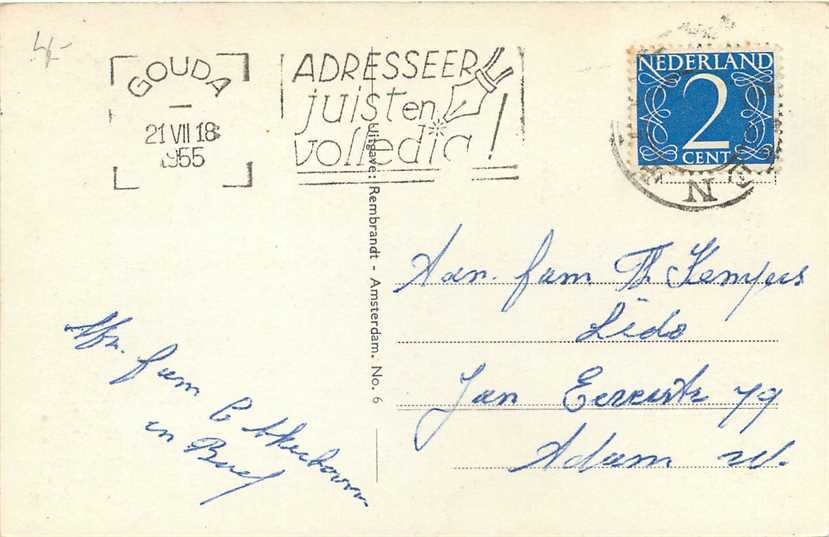 4,-
GOUDA
21 VII 18
1955
ADRESSEER
juist en
volledig!
NEDERLAND
2
CENT
N
Uitgave: Rembrandt - Amsterdam. No. 6
Aan. fam Th Kempers
Lido
Jan 79
Adam W.
Afz. fam C
en